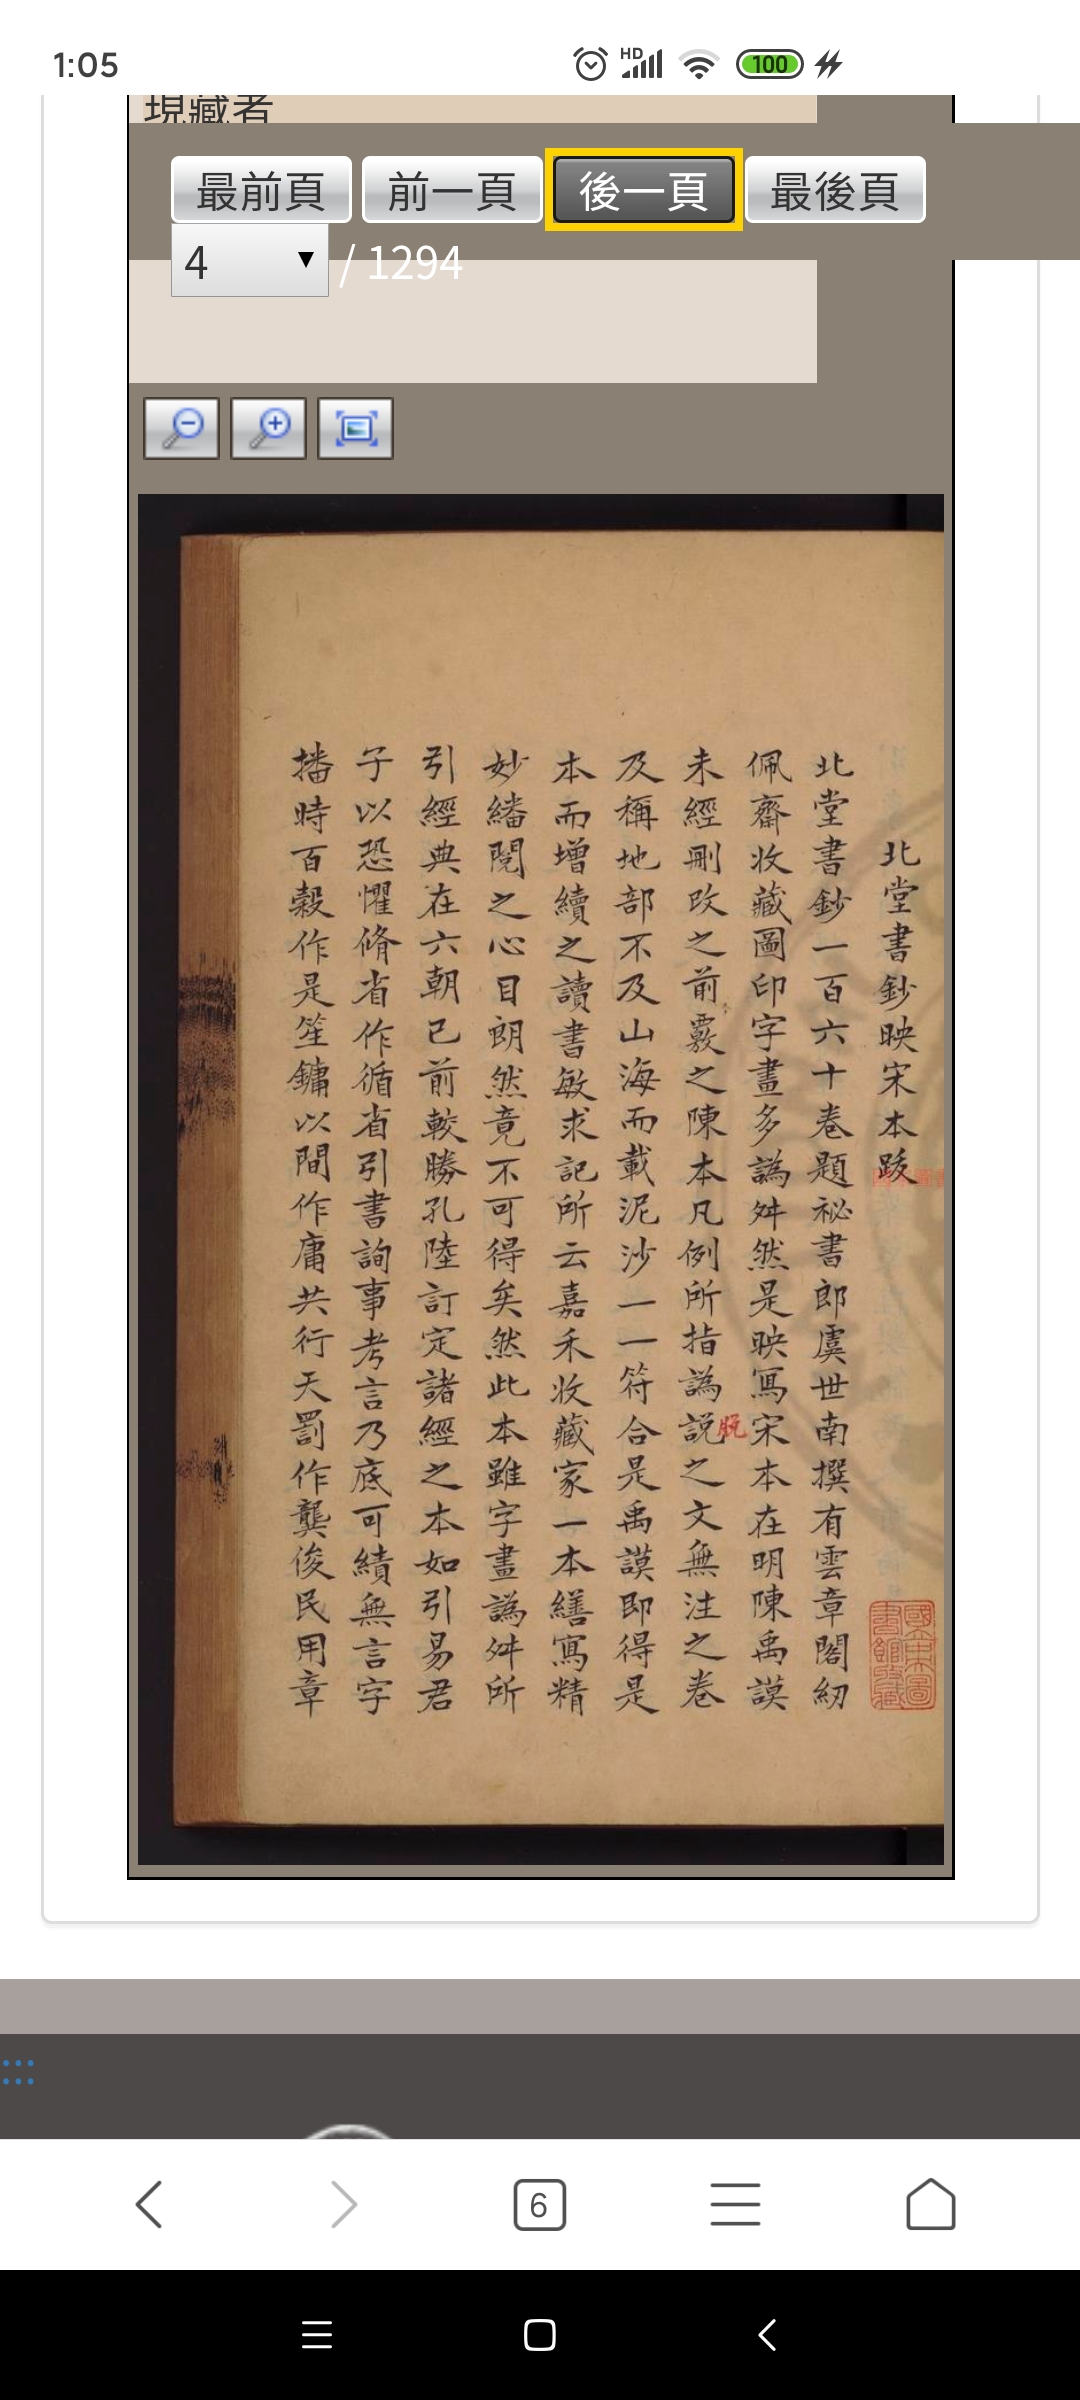 1:05
HD
100
現藏者
最前頁 前一頁 後一頁 最後頁
4 / 1294
北堂書鈔映宋本跋
北堂書鈔一百六十卷題祕書郎虞世南撰有雲章閣紉
佩齋收藏圖印字畫多譌舛然是映寫宋本在明陳禹謨
未經刪改之前覈之陳本凡例所指譌説脫之文無注之卷
及稱地部不及山海而載泥沙一一符合是禹謨即得是
本而增續之讀書敏求記所云嘉禾收藏家一本繕寫精
妙繙閱之心目朗然竟不可得矣然此本雖字畫譌舛所
引經典在六朝已前較勝孔陸訂定諸經之本如引易君
子以恐懼脩省作循省引書詢事考言乃底可績無言字
播時百榖作是笙鏞以間作庸共行天罰作龔俊民用章
國家圖書館收藏
6